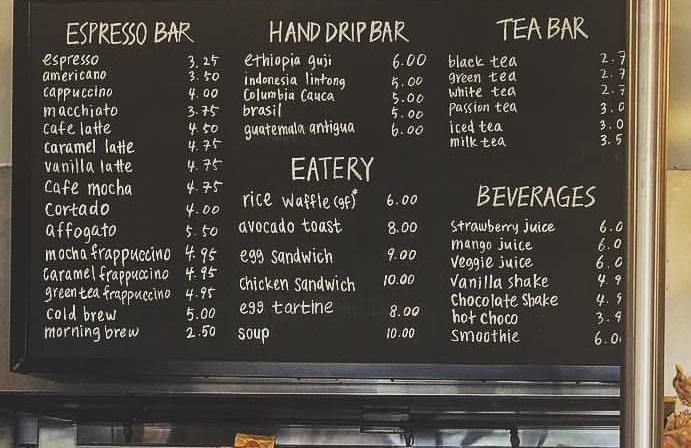 ESPRESSO BAR
espresso 3.25
americano 3.50
cappuccino 4.00
macchiato 3.75
cafe latte 4.50
caramel latte 4.75
vanilla latte 4.75
cafe mocha 4.75
cortado 4.00
affogato 5.50
mocha frappuccino 4.95
caramel frappuccino 4.95
green tea frappuccino 4.95
cold brew 5.00
morning brew 2.50
HAND DRIP BAR
ethiopia guji 6.00
indonesia lintong 5.00
Columbia Cauca 5.00
brasil 5.00
guatemala antigua 6.00
EATERY
rice waffle (gf)* 6.00
avocado toast 8.00
egg sandwich 9.00
chicken sandwich 10.00
egg tartine 8.00
soup 10.00
TEA BAR
black tea 2.7
green tea 2.7
white tea 2.7
passion tea 3.0
iced tea 3.0
milk tea 3.5
BEVERAGES
strawberry juice 6.0
mango juice 6.0
veggie juice 6.0
vanilla shake 4.9
chocolate shake 4.9
hot choco 3.9
smoothie 6.0